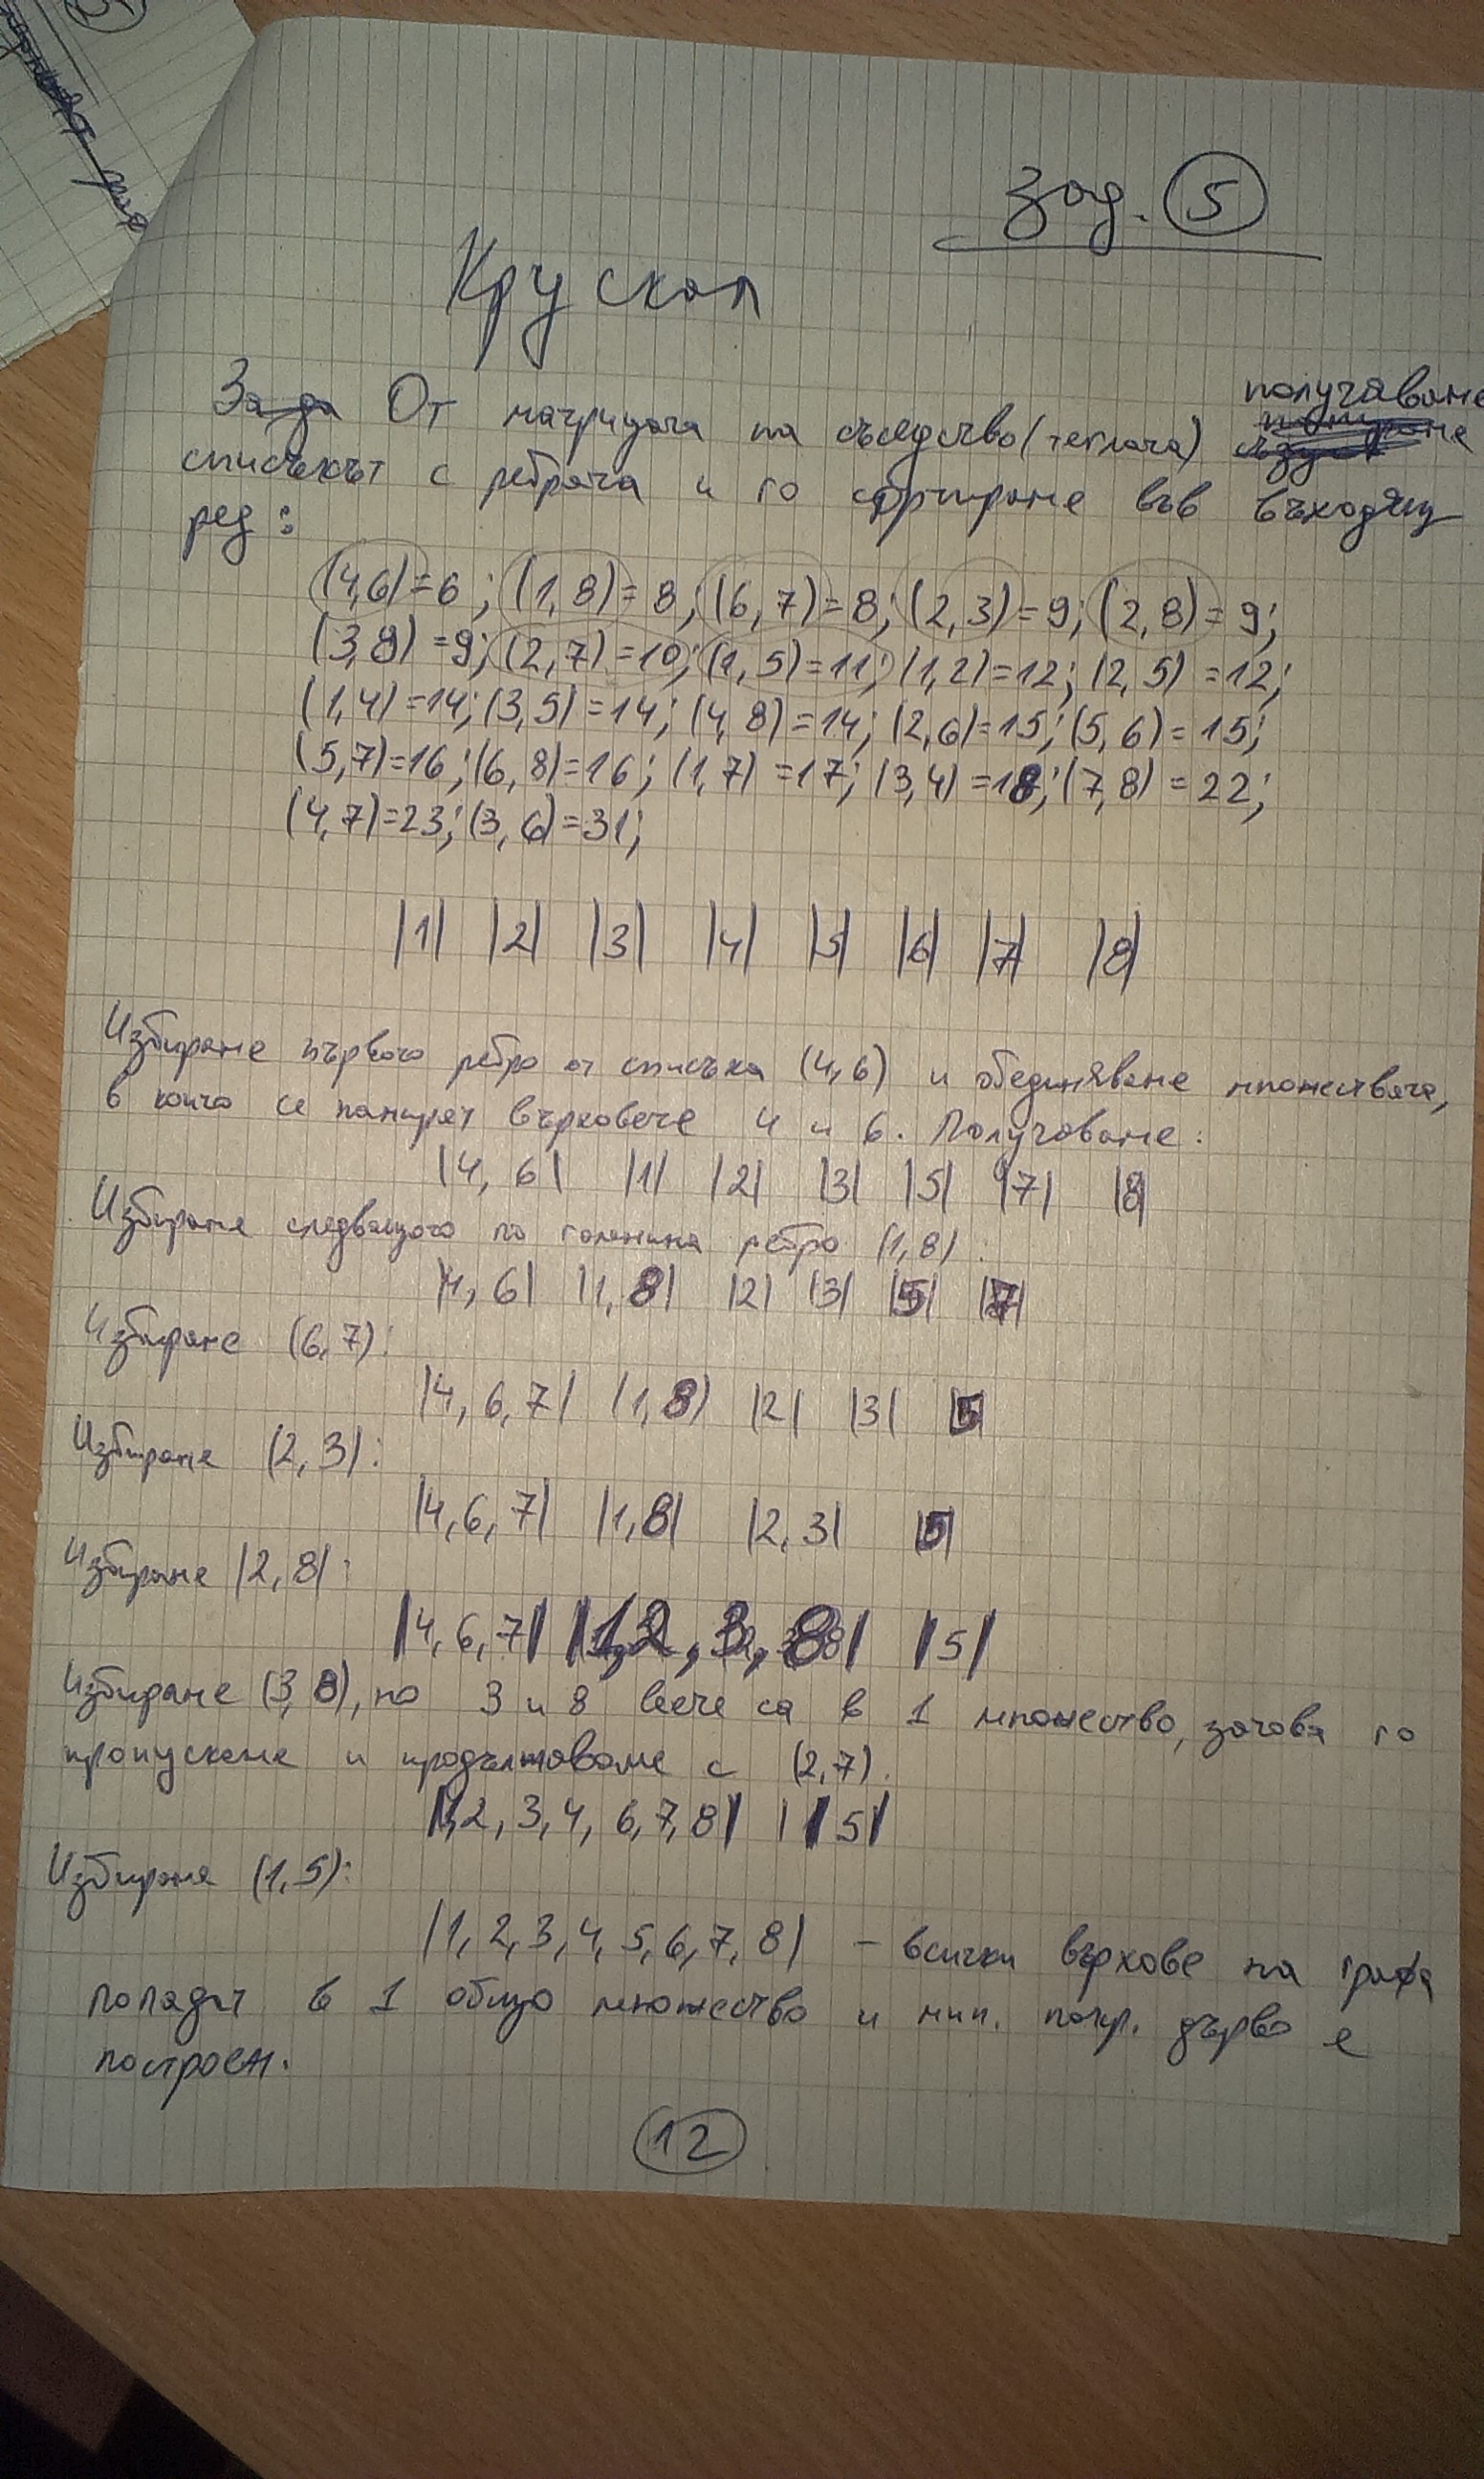 зад. 5
Крускал
За да От матрицата на съседство (теглата) получаваме
списъкът с ребрата и го сортираме във възходящ
ред:
(4,6)=6; (1,8)=8; (6,7)=8; (2,3)=9; (2,8)=9;
(3,8)=9; (2,7)=10; (1,5)=11; (1,2)=12; (2,5)=12;
(1,4)=14; (3,5)=14; (4,8)=14; (2,6)=15; (5,6)=15;
(5,7)=16; (6,8)=16; (1,7)=17; (3,4)=18; (7,8)=22;
(4,7)=23; (3,6)=31;
|1| |2| |3| |4| |5| |6| |7| |8|
Избираме първото ребро от списъка (4,6) и обединяваме множествата,
в които се намират върховете 4 и 6. Получаваме:
|4, 6| |1| |2| |3| |5| |7| |8|
Избираме следващото по големина ребро (1,8):
|4, 6| |1,8| |2| |3| |5| |7|
Избираме (6,7):
|4, 6, 7| |1,8| |2| |3| |5|
Избираме (2,3):
|4, 6, 7| |1,8| |2,3| |5|
Избираме |2,8|:
|4, 6, 7| |1,2,3,8| |5|
Избираме (3,8), но 3 и 8 вече са в 1 множество, затова го
пропускаме и продължаваме с (2,7).
|1,2, 3, 4, 6, 7, 8| |5|
Избираме (1,5):
|1, 2, 3, 4, 5, 6, 7, 8| – всички върхове на графа
попадат в 1 общо множество и мин. покр. дърво е
построен.
12